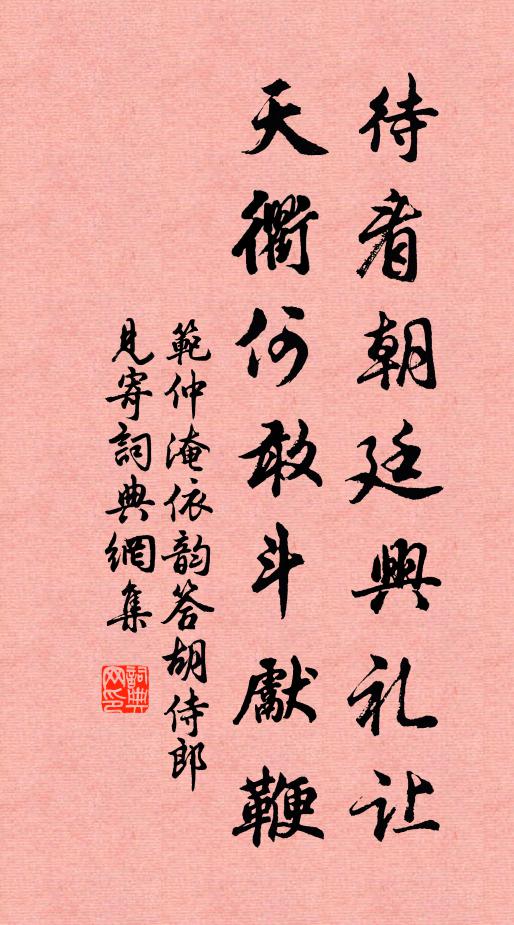 待看朝廷興礼让
天衢何敢斗獻鞭
範仲淹依韵答胡侍郎
見寄詞典網集
詞典网印